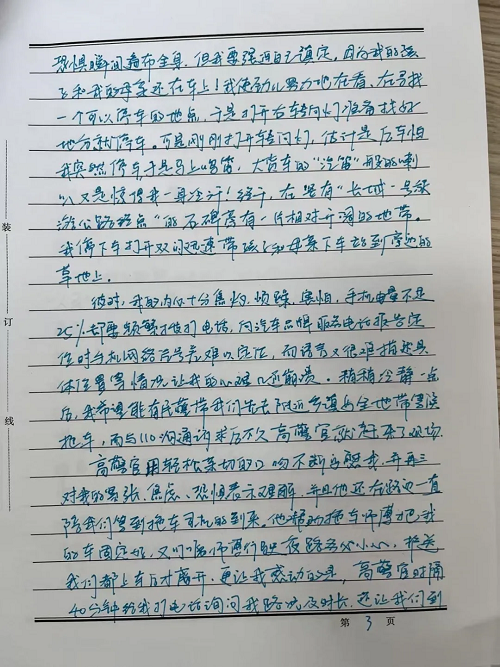 恐惧瞬间遍布全身，但我要强迫自己镇定，因为我的孩
子和我的母亲还在车上！我使劲儿努力地在看、在寻找
一个可以停车的地点，于是打开右车转向灯准备找好
地方就停车，可是刚刚打开车转向灯，估计是后车怕
我突然停车于是马上鸣笛，大货车的“汽笛”般的喇
叭又是惊得我一身冷汗！终于，在路有“长城一号旅
游公路观点”的石碑旁有一片相对开阔的地带。
我停下车打开双闪迅速带孩子和母亲下车站到旁边的
草地上。
彼时，我的内心十分焦灼、烦躁、害怕，手机电量不足
25%却要频繁拨打电话，向汽车品牌服务电话报告定
位时手机网络信号差难以定位，而语言又很难描述具
体位置等情况让我的心理几近崩溃。稍稍冷静一点
后，我希望能有民警带我们先去附近乡镇安全地带等候
拖车，而与110沟通请求后不久高警官就赶来了现场。
高警官用轻松亲切的口吻不断安慰我，并再三
对我的紧张、焦虑、恐惧表示理解，并且他还在路边一直
陪我们等到拖车司机的到来。他帮助拖车师傅把我
的车固定好，又叮嘱师傅行驶夜路务必小心，护送
我们都上车后才离开。更让我感动的是，高警官时隔
40分钟给我打电话询问我路况及时长，还让我们到
装
订
线
第 3 页